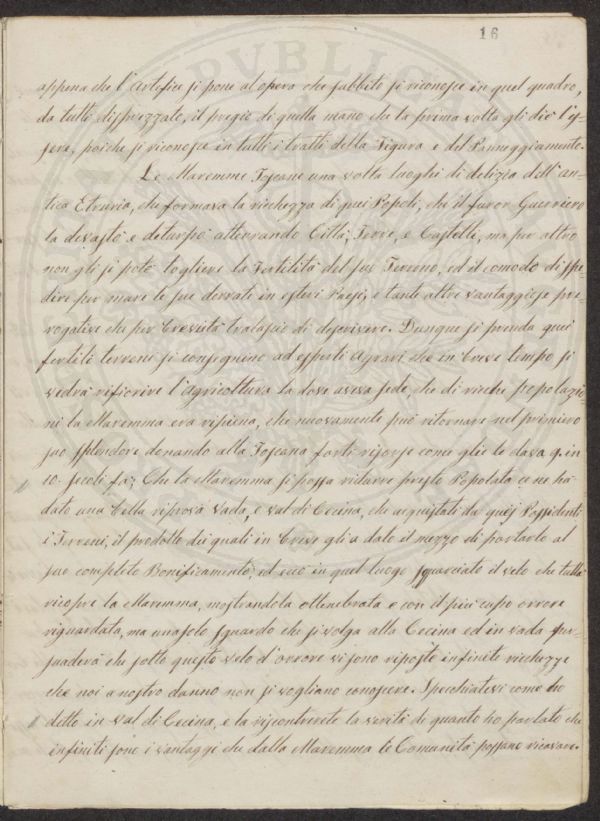 16
appena che l'Artefice si pone al opera che subbito si riconosce in quel quadro,
da tutti disprezzato, il pregio di quella mano che la prima volta gli diè l'es-
sere, poiche si riconosce in tutti i tratti della Figura e del Panneggiamento.
Le Maremme Toscane una volta luoghi di delizia dell'an-
tica Etruria, che formava la ricchezza di quei Popoli, che il furor Guerriero
la devastò e deturpò atterrando Città, Terre, e Castelli, ma per altro
non gli si potè togliere la Fertilità del suo Terreno, ed il comodo di spe-
dire per mare le sue derrate in esteri Paesi, e tante altre vantaggiose pre-
rogative che per brevità tralascio di descrivere. Dunque si prenda quei
fertili terreni si consegnino ad esperti Agrari che in breve tempo si
vedrà rifiorire l'Agricoltura la dove aveva sede, che di ricche popolazio-
ni la Maremma era ripiena, che nuovamente può ritornare nel primiero
suo splendore donando alla Toscana forti risorse come glie le dava q. in
10. secoli fa; Che la Maremma si possa ridurre presto Popolata ce ne ha
dato una bella riprova Vada, e val di Cecina, che acquistati da quei Possidenti
i Terreni, il prodotto dei quali in breve gli à dato il mezzo di portarlo al
suo completo Bonificamento; ed ecco in quel luogo squarciato il velo che tutta
ricopre la Maremma, mostrandola ottenebrata e con il più cupo orrore
riguardata, ma un solo sguardo che si volga alla Cecina ed in vada per-
suaderà che sotto questo velo d'orrore vi sono riposte infinite ricchezze
che noi a nostro danno non si vogliano conoscere. Specchiatevi come ho
detto in val di Cecina, e la riscontrerete la verità di quanto ho parlato che
infiniti sono i vantaggi che dalla Maremma le Comunità possano ricavare.